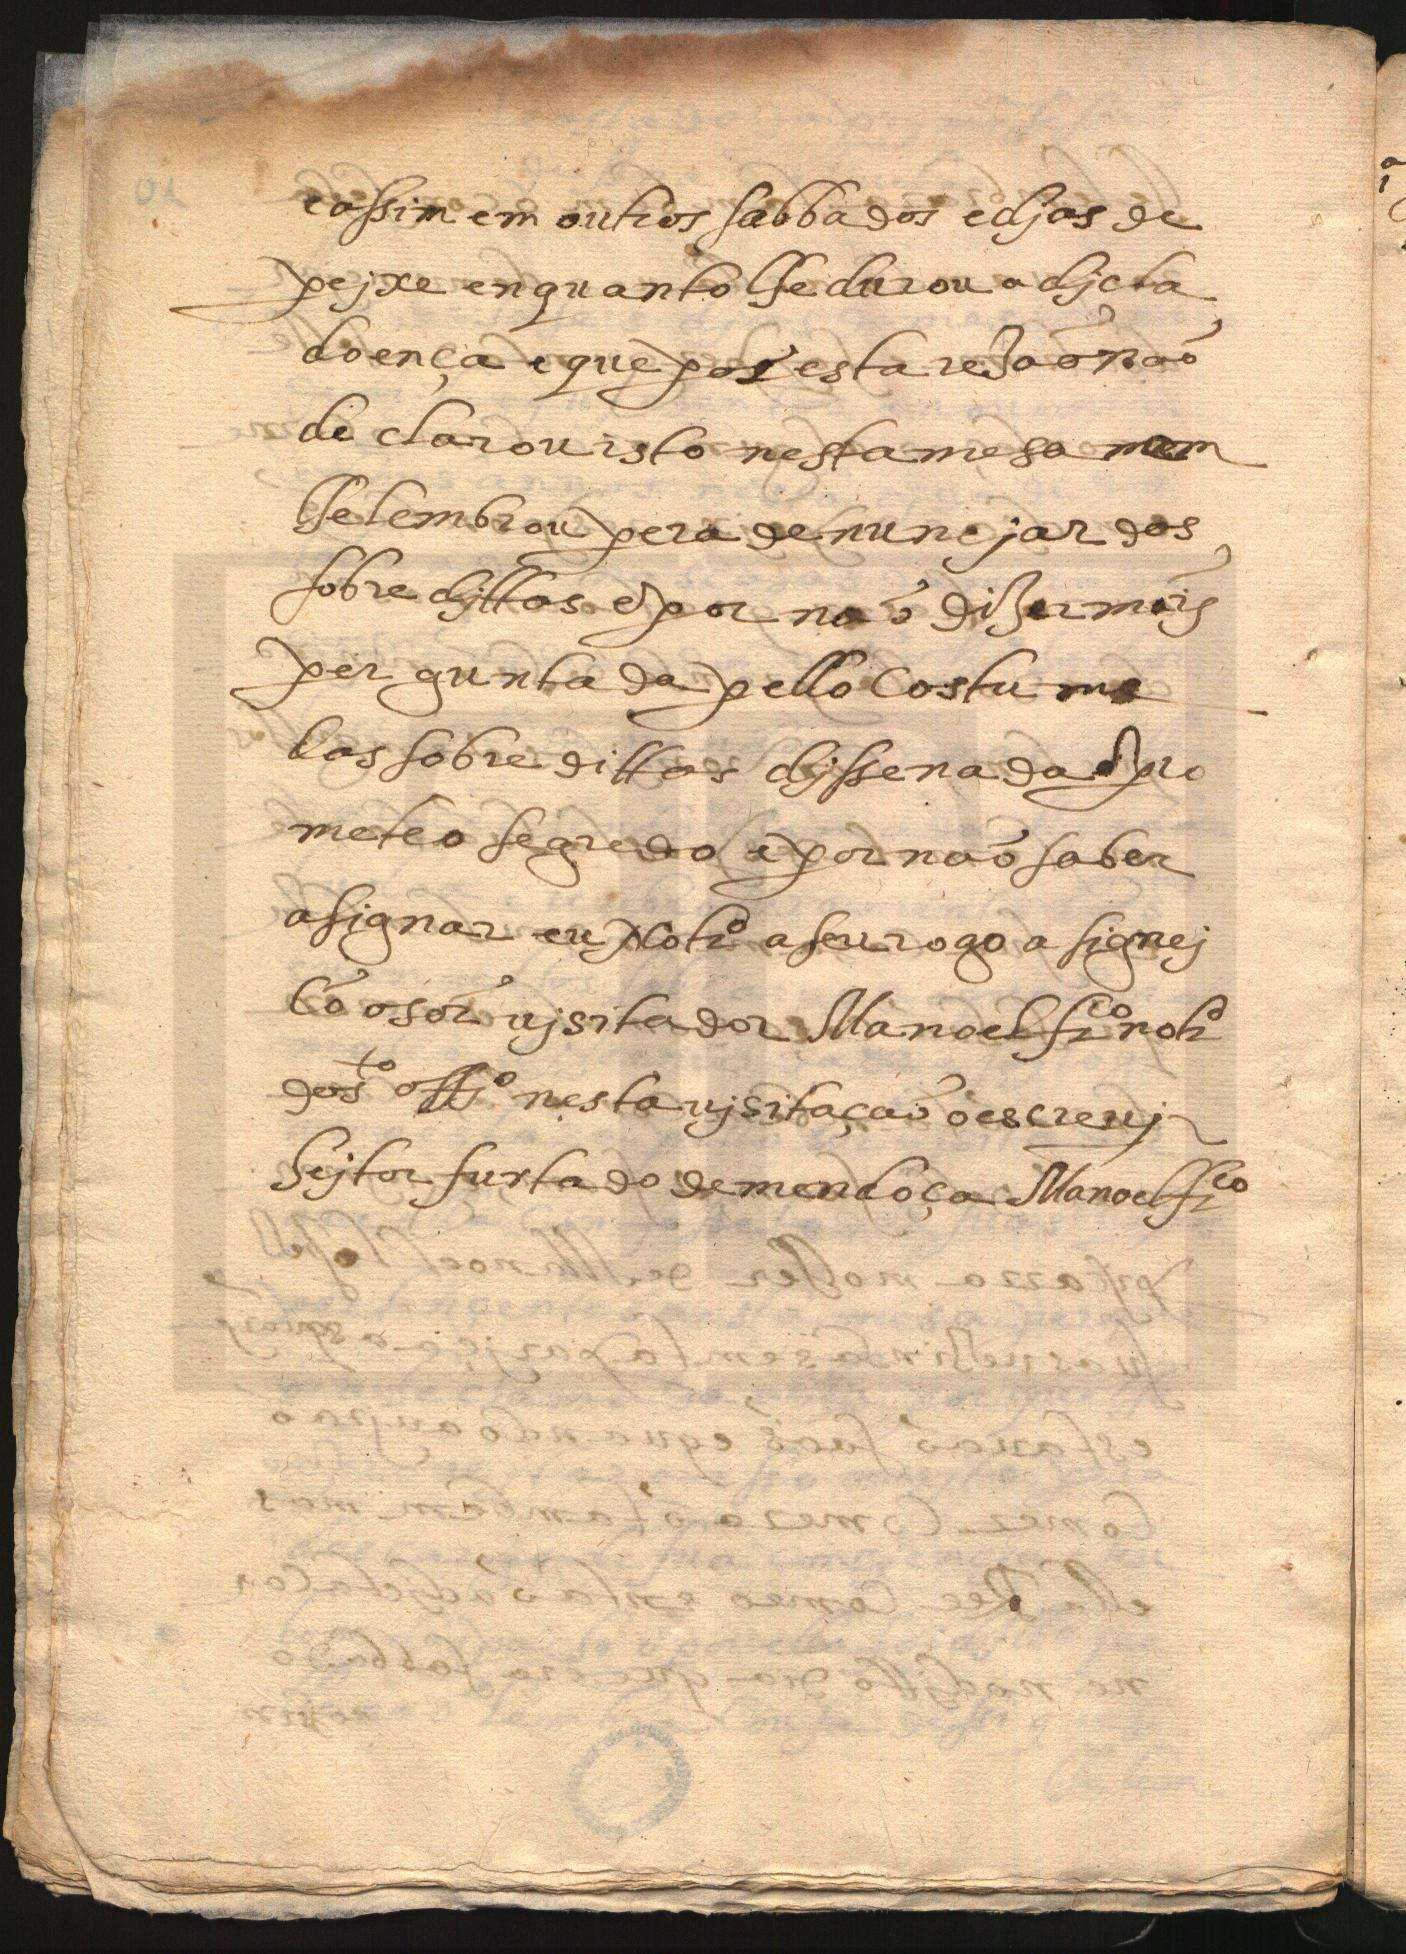 e assim em outros sabbados e djas de
pejxe enquanto lhe durou a djcta
doença e que por esta rezaõ naõ
declarou isto nesta mesa nem
lhe lembrou pera denuncjar dos
sobre djttos e por naõ dizer mais
perguntada pello costume
das sobredittas djsse nada e pro
meteo segredo e por naõ saber
asignar eu notro a seu rogo asignej
cõ o sõr vjsitador Manoel frco notro
do sto offjo nesta vjsitaçaõ o escrevj
hejtor furtado de mendoça Manoel frco